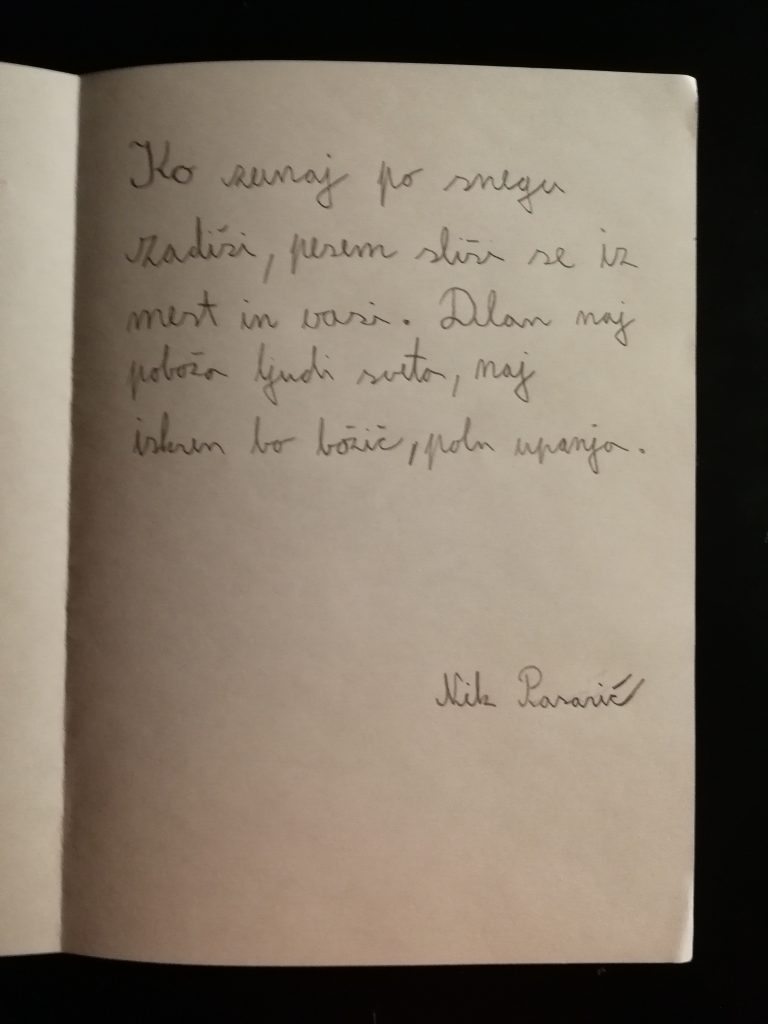 Ko zunaj po snegu
zadiši, pesem sliši se iz
mest in vasi. Dlan naj
poboža ljudi sveta, naj
iskren bo božič, poln upanja.
Nik